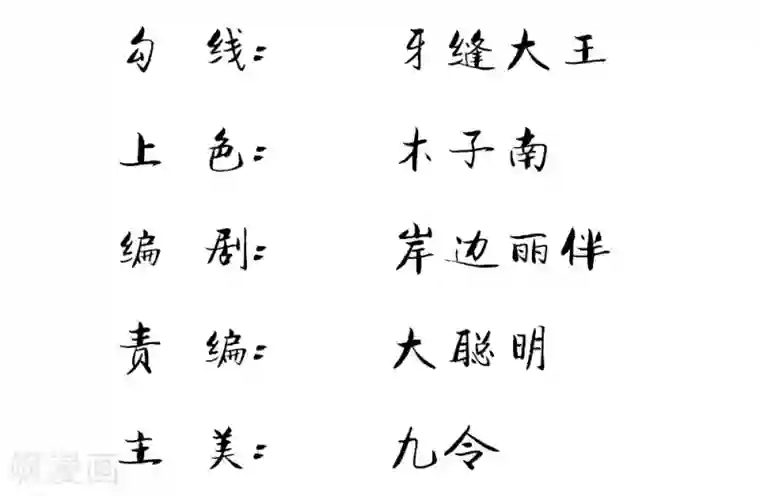 勾 线： 牙缝大王
上 色： 木子南
编 剧： 岸边丽伴
责 编： 大聪明
主 美： 九令
飒漫画